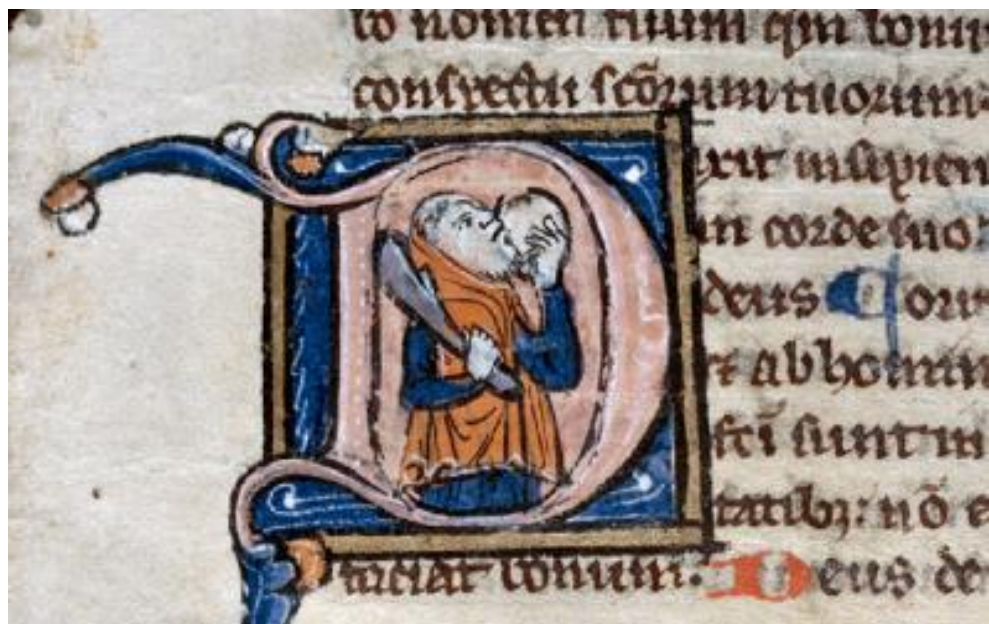 to nomen tuum qm bonu
conspectu scorum tuorum
D ixit insipien
in corde suo:
deus Corr
t ab homin
sci sunt in
tatibz: nō e
faciat bonum. Deus de